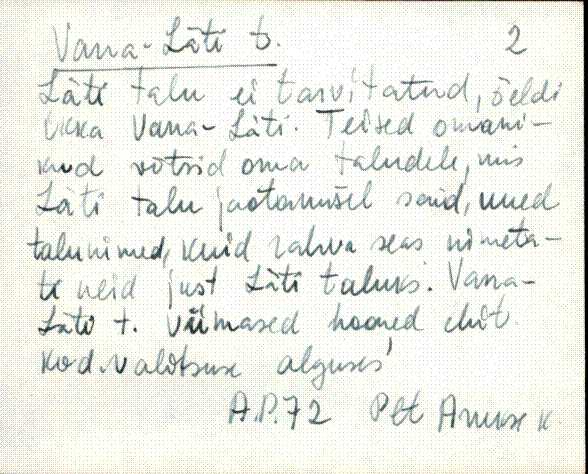 Vana-Läti t. 2
Läti talu ei tarvitatud, öeldi
ikka Vana-Läti. Teised omani-
kud võtsid oma taludele, mis
Läti talu jaotamisel said, uued
talunimed, kuid rahva seas nimeta-
ti neid just Läti taluks. Vana-
Läti t. viimased hooned ehit.
kod. valitsuse alguses
A.P.72 Plt Anuse k.